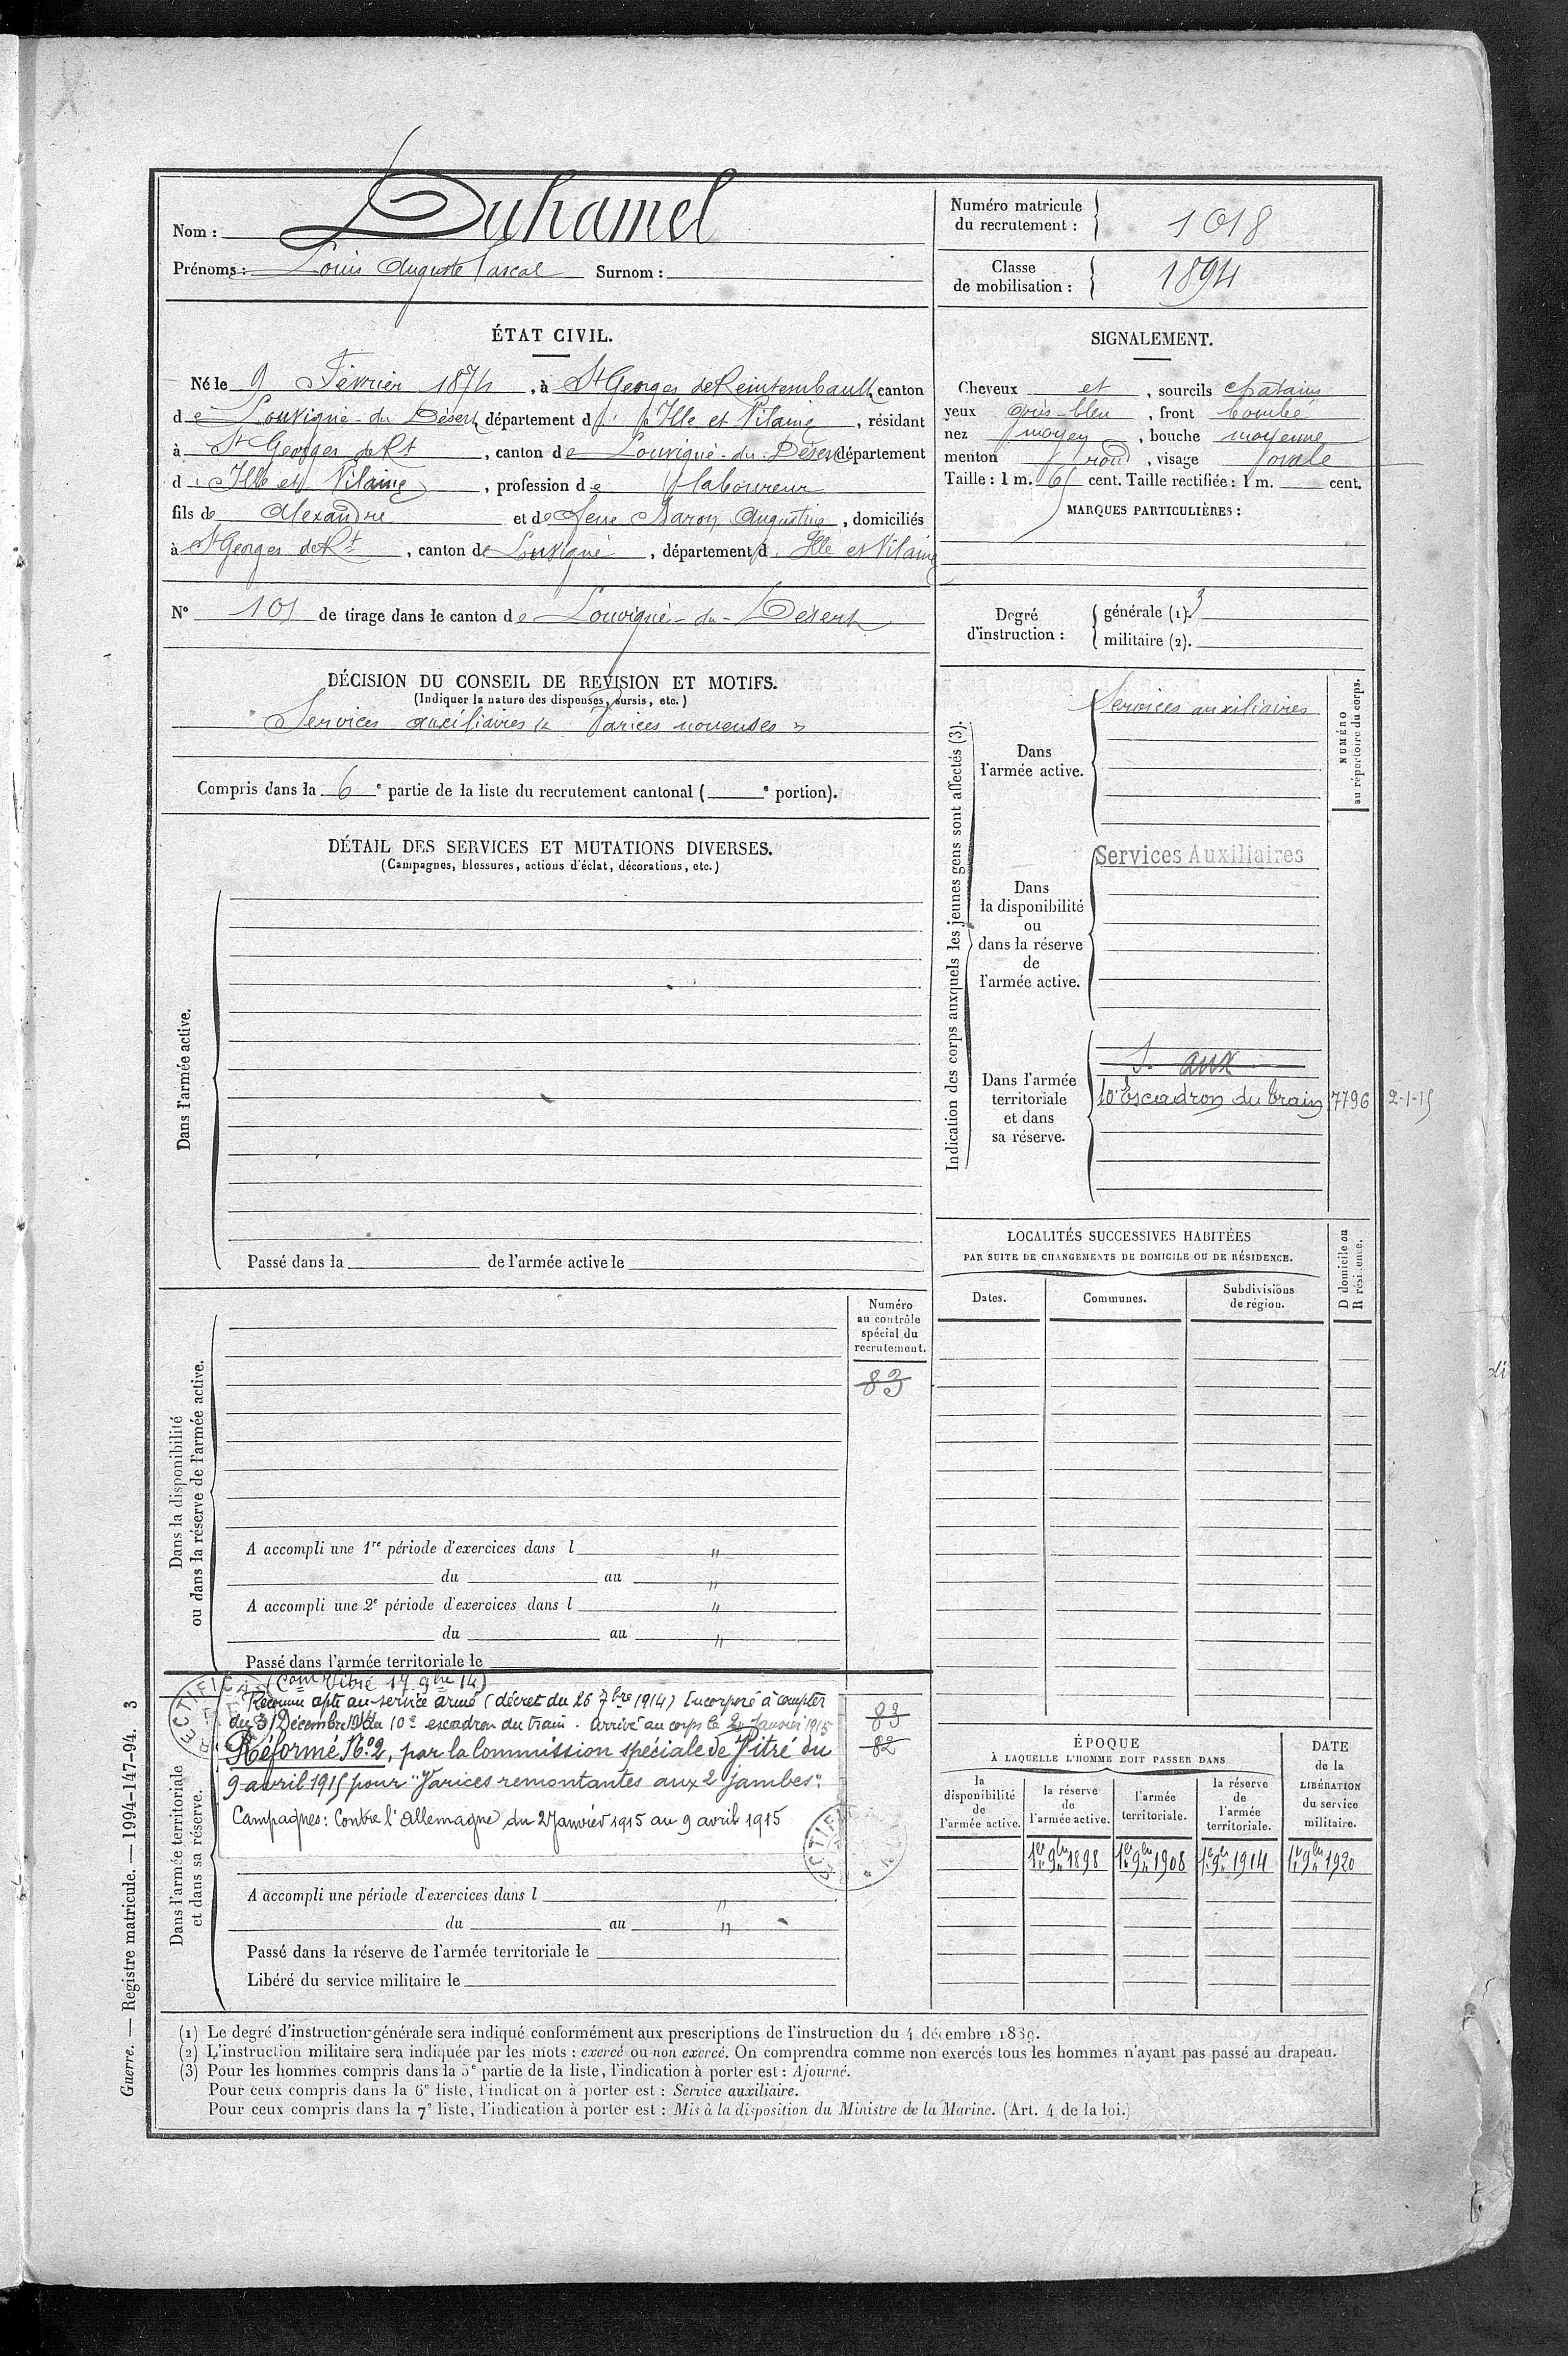 Nom : Duhamel
Prénoms : Louis Auguste Pascal Surnom :
Numéro matricule
du recrutement : 1018
Classe
de mobilisation : 1894
ÉTAT CIVIL.
Né le 9 Février 1874, à St Georges de Reintembault canton
de Louvigné-du-Désert département d'Ille et Vilaine, résidant
à St Georges de Rt, canton de Louvigné-du-Désert département
d'Ille et Vilaine, profession de laboureur
fils de Alexandre et de feue Baron Augustine, domiciliés
à St Georges de Rt, canton de Louvigné, département d'Ille et Vilaine
N° 101 de tirage dans le canton de Louvigné-du-Désert
SIGNALEMENT.
Cheveux et, sourcils chatains
yeux gris-bleu, front bombé
nez moyen, bouche moyenne
menton rond, visage ovale
Taille : 1 m. 65 cent. Taille rectifiée : 1 m. cent.
MARQUES PARTICULIÈRES :
Degré
d'instruction :
générale (1). 3
militaire (2).
DÉCISION DU CONSEIL DE REVISION ET MOTIFS.
(Indiquer la nature des dispenses, sursis, etc.)
Services auxiliaires « Varices noueuses »
Compris dans la 6e partie de la liste du recrutement cantonal ( e portion).
DÉTAIL DES SERVICES ET MUTATIONS DIVERSES.
(Campagnes, blessures, actions d'éclat, décorations, etc.)
Dans l'armée active.
Passé dans la de l'armée active le
Indication des corps auxquels les jeunes gens sont affectés (3).
NUMÉRO
au répertoire du corps.
Dans
l'armée active.
Services auxiliaires
Dans
la disponibilité
ou
dans la réserve
de
l'armée active.
Services Auxiliaires
Dans l'armée
territoriale
et dans
sa réserve.
S. aux
10e Escadron du train 7796 2-1-15
LOCALITÉS SUCCESSIVES HABITÉES
PAR SUITE DE CHANGEMENTS DE DOMICILE OU DE RÉSIDENCE.
Dates.
Communes.
Subdivisions
de région.
D domicile ou
R résidence.
Dans la disponibilité
ou dans la réserve de l'armée active.
Numéro
au contrôle
spécial du
recrutement.
83
A accompli une 1re période d'exercices dans l "
du au "
A accompli une 2e période d'exercices dans l "
du au "
Passé dans l'armée territoriale le
Dans l'armée territoriale
et dans sa réserve.
(Com Vitré 17 9bre 14)
Reconnu apte au service armé (décret du 26 7bre 1914) Incorporé à compter
du 31 Décembre 1914 au 10e escadron du train. arrivé au corps le 2 Janvier 1915
Réformé N° 2, par la Commission spéciale de Vitré du
9 avril 1915 pour "Varices remontantes aux 2 jambes".
Campagnes : Contre l'Allemagne du 2 Janvier 1915 au 9 avril 1915
83
82
A accompli une période d'exercices dans l "
du au "
Passé dans la réserve de l'armée territoriale le
Libéré du service militaire le
ÉPOQUE
À LAQUELLE L'HOMME DOIT PASSER DANS
la
disponibilité
de
l'armée active.
la réserve
de
l'armée active.
l'armée
territoriale.
la réserve
de
l'armée
territoriale.
DATE
de la
LIBÉRATION
du service
militaire.
1er 9bre 1898
1er 9bre 1908
1er 9bre 1914
1er 9bre 1920
(1) Le degré d'instruction générale sera indiqué conformément aux prescriptions de l'instruction du 4 décembre 1889.
(2) L'instruction militaire sera indiquée par les mots : exercé ou non exercé. On comprendra comme non exercés tous les hommes n'ayant pas passé au drapeau.
(3) Pour les hommes compris dans la 5e partie de la liste, l'indication à porter est : Ajourné.
Pour ceux compris dans la 6e liste, l'indication à porter est : Service auxiliaire.
Pour ceux compris dans la 7e liste, l'indication à porter est : Mis à la disposition du Ministre de la Marine. (Art. 4 de la loi.)
Guerre. — Registre matricule. — 1994-147-94. 3